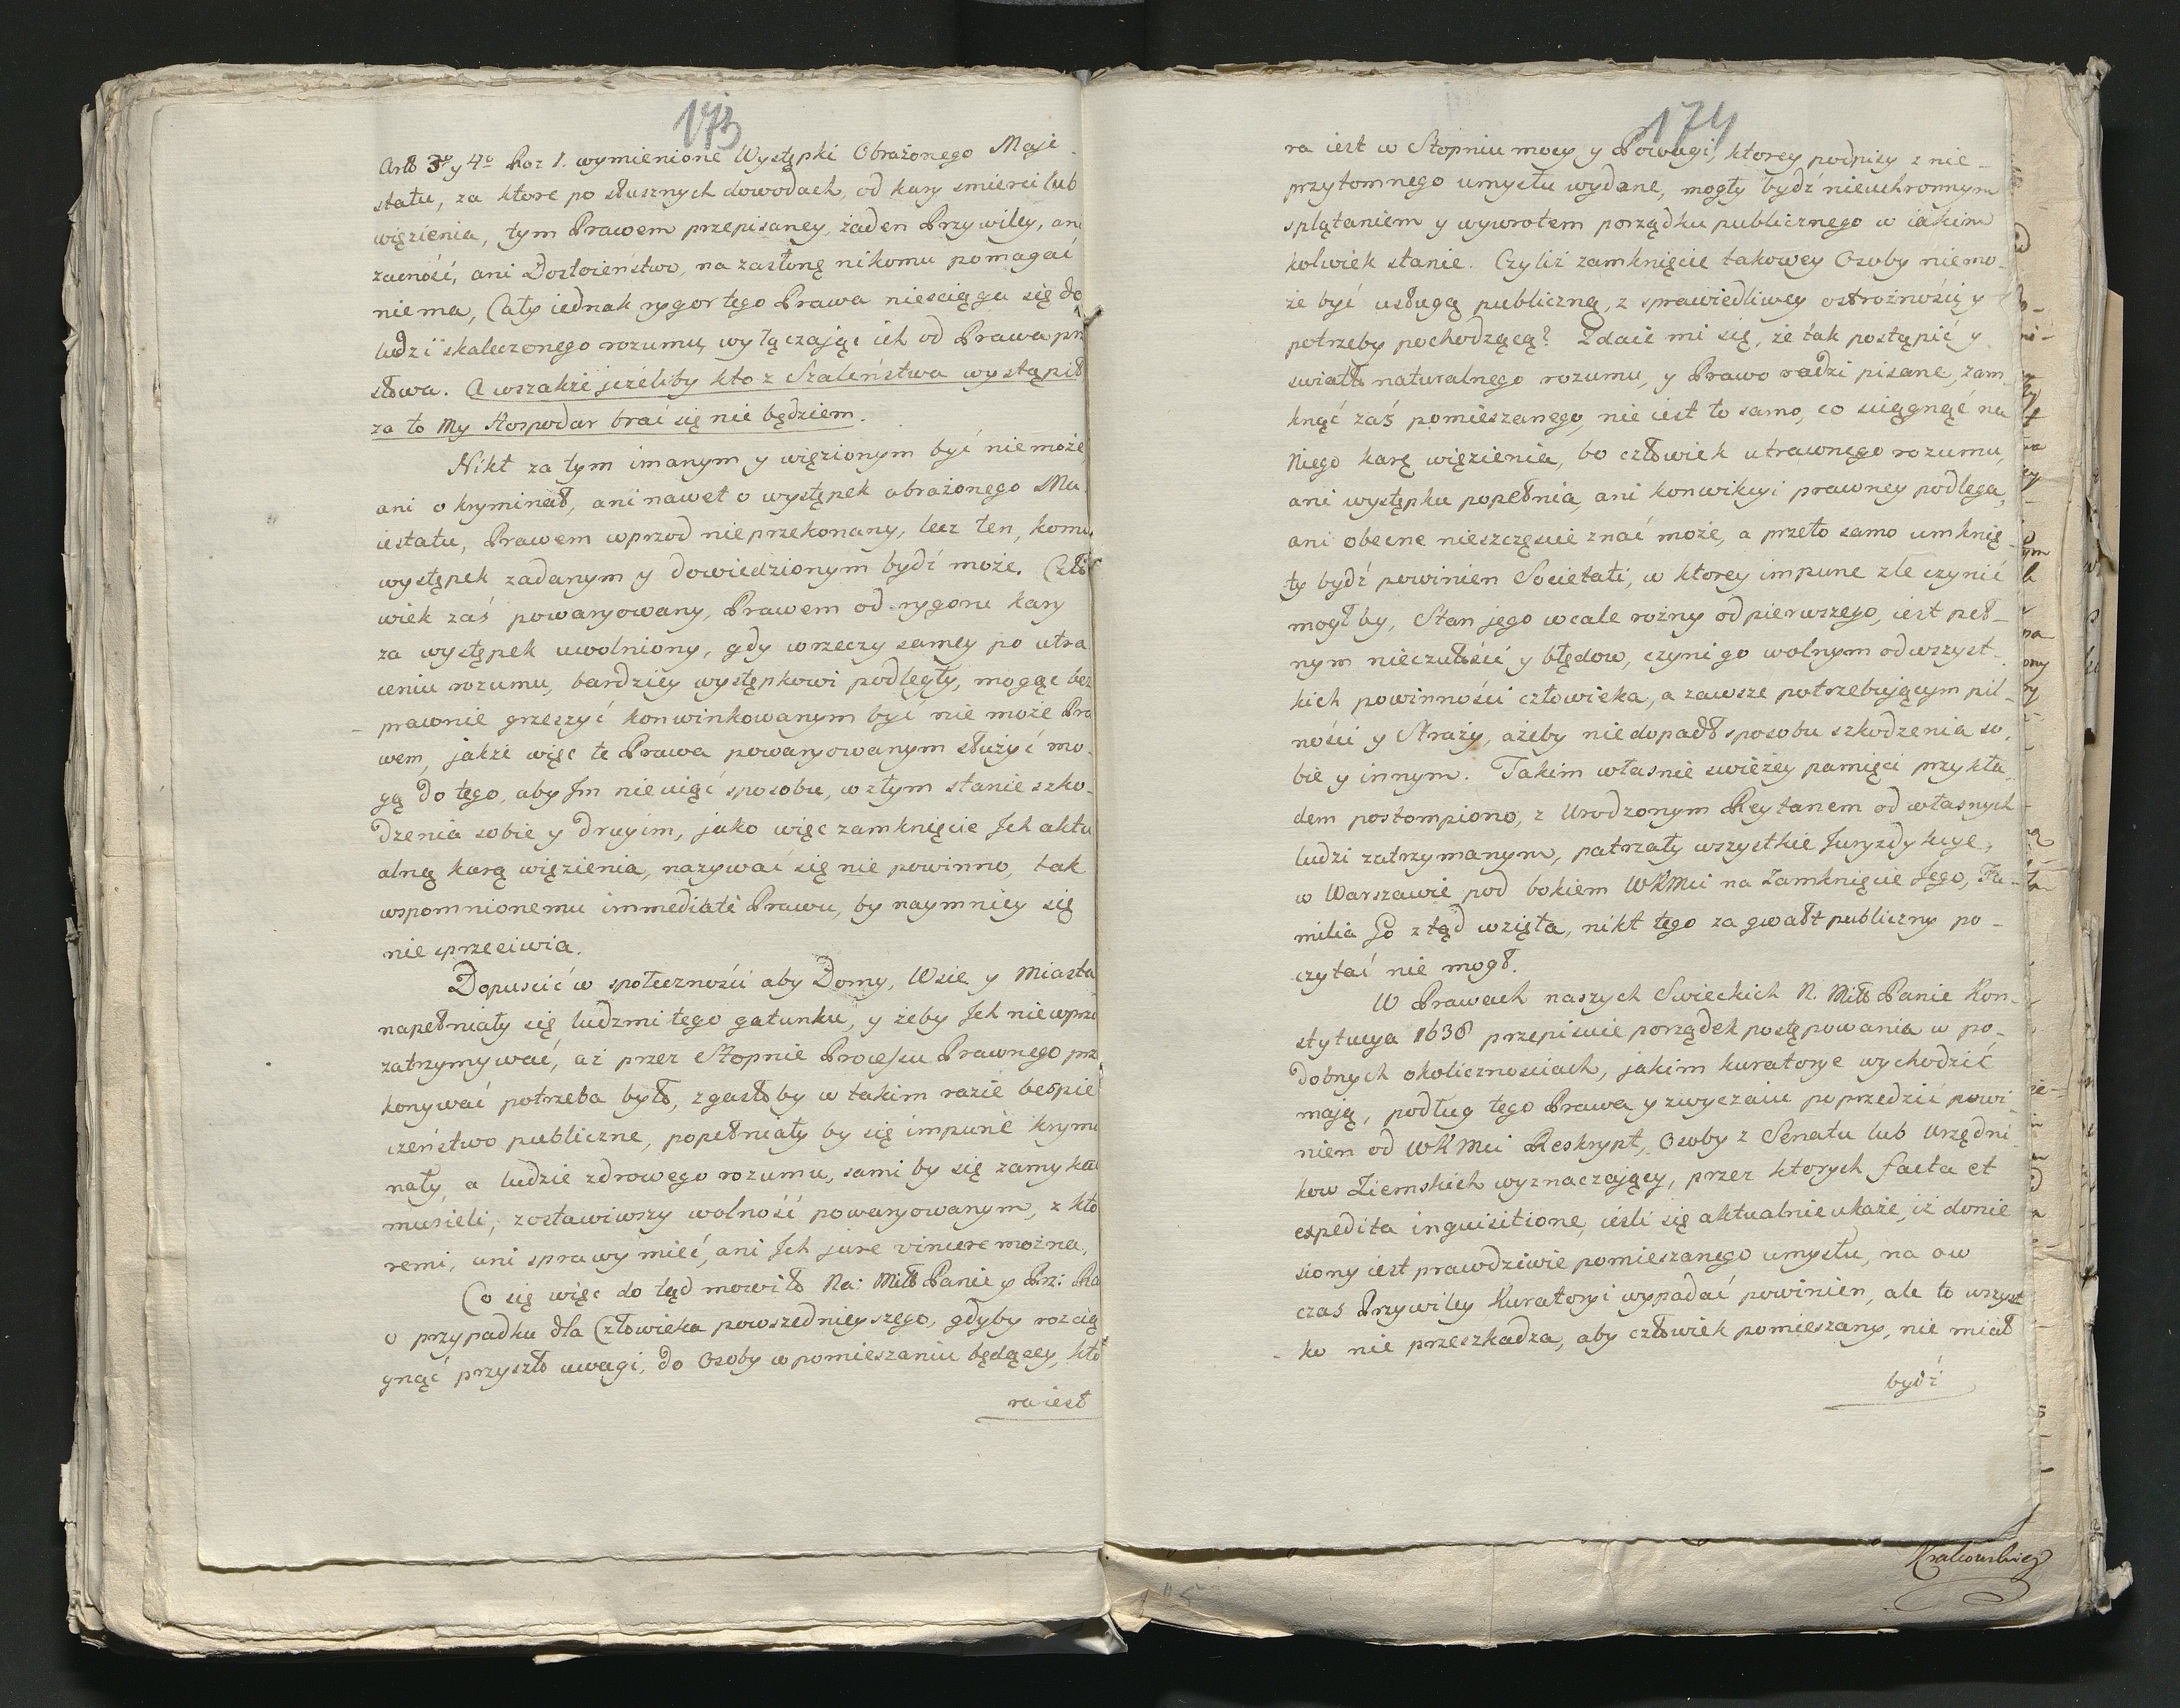 173
Artt 3º y 4º Roz 1. wymienione Występki Obrażonego Maje
statu, za ktore po słusznych dowodach, od kary smierci lub
więzienia, tym Prawem przepisaney, żaden Przywiley, ani
zacność, ani Dostoieństwo, na zasłonę nikomu pomagać
niema, Cały iednak rygor tego Prawa niesciąga się do
ludzi skaleczonego rozumu, wyłączając ich od Prawa prz
słowa. A wszakże jeżeliby kto z Szaleństwa wystąpił
za to My Hospodar brać się nie będziem.
Nikt za tym imanym y więzionym być niemoże,
ani o kryminał, ani nawet o występek obrażonego Ma
iestatu, Prawem wprzod nieprzekonany, lecz ten, komu
występek zadanym y dowiedzionym bydź może. Czło
wiek zaś powaryowany, Prawem od rygoru kary
za występek uwolniony, gdy w rzeczy samey po utra
ceniu rozumu, bardziey występkowi podległy, mogąc bez
prawnie grzeszyć konwinkowanym być nie może Pra
wem, jakże więc te Prawa powaryowanym służyć mo-
gą do tego, aby Jm nieuiąć sposobu, w złym stanie szko-
dzenia sobie y drugim, jako więc zamknięcie Jch aktu
alną karą więzienia, nazywać się nie powinno, tak
wspomnionemu immediate Prawu, by naymniey się
nie sprzeciwia.
Dopuscić w społeczności aby Domy, Wsie y Miasta
napełniały się ludzmi tego gatunku, y żeby Jch niewprz
zatrzymywać, aż przez Stopnie Procesu Prawnego prz
konywać potrzeba było, zgasło by w takim razie bespie
czeństwo publiczne, popełniały by się impune krymi
nały, a ludzie zdrowego rozumu, sami by się zamykać
musieli, zostawiwszy wolność powaryowanym, z kto
remi, ani sprawy mieć, ani Jch jure vincere można.
Co się więc do tąd mowiło Na: Miłł Panie y Prz: Ra
o przypadku dla Człowieka powszednieyszego, gdyby rozcią
gnąć przyszło uwagi, do Osoby w pomieszaniu będącey, kto
ra iest
174
ra iest w Stopniu mocy y Powagi, ktorey podpisy z nie-
przytomnego umysłu wydane, mogły bydź nieuchronnym
splątaniem y wywrotem porządku publicznego w iakim
kolwiek stanie. Czyliż zamknięcie takowey Osoby niemo-
że być usługą publiczną, z sprawiedliwey ostrożności y
potrzeby pochodzącą? Zdaie mi się, że tak postąpić y
swiatło naturalnego rozumu, y Prawo radzi pisane, zam
knąć zaś pomieszanego, nie iest to samo, co sciągnąć na
Niego karę więzienia, bo człowiek utrawnego rozumu,
ani występku popełnia, ani konwikcyi prawney podlega,
ani obecne nieszczęscie znać może, a przeto samo umknię-
ty bydź powinien Societati, w ktorey impune zle czynić
mogł by, Stan jego wcale rożny od pierwszego, iest peł-
nym nieczułości y błędow, czyni go wolnym od wszyst-
kich powinności człowieka, a zawsze potrzebującym pil-
ności y Straży, ażeby niedopadł sposobu szkodzenia so-
bie y innym. Takim własnie swieżey pamięci przykła-
dem postompiono, z Urodzonym Reytanem od własnych
ludzi zatrzymanym, patrzały wszystkie Juryzdykcye,
w Warszawie pod bokiem WKMci na Zamknięcie Jego, Fa-
milia Go z tąd wzięła, nikt tego za gwałt publiczny po-
czytać nie mogł.
W Prawach naszych Swieckich N. Miłł Panie Kon-
stytucya 1638 przepisuie porządek postępowania w po-
dobnych okolicznosciach, jakim kuratorye wychodzić
mają, podług tego Prawa y zwyczaiu poprzedzić powi-
nien od WKMci Reskrypt, Osoby z Senatu lub Urzędni-
kow Ziemskich wyznaczający, przez ktorych facta et
expedita inquisitione, iesli się aktualnie ukaże, iż donie
siony iest prawdziwie pomieszanego umysłu, na ow
czas Przywiley Kuratoryi wypadać powinien, ale to wszyst
ko nie przeszkadza, aby człowiek pomieszany, nie miał
bydź
Krakowskiey